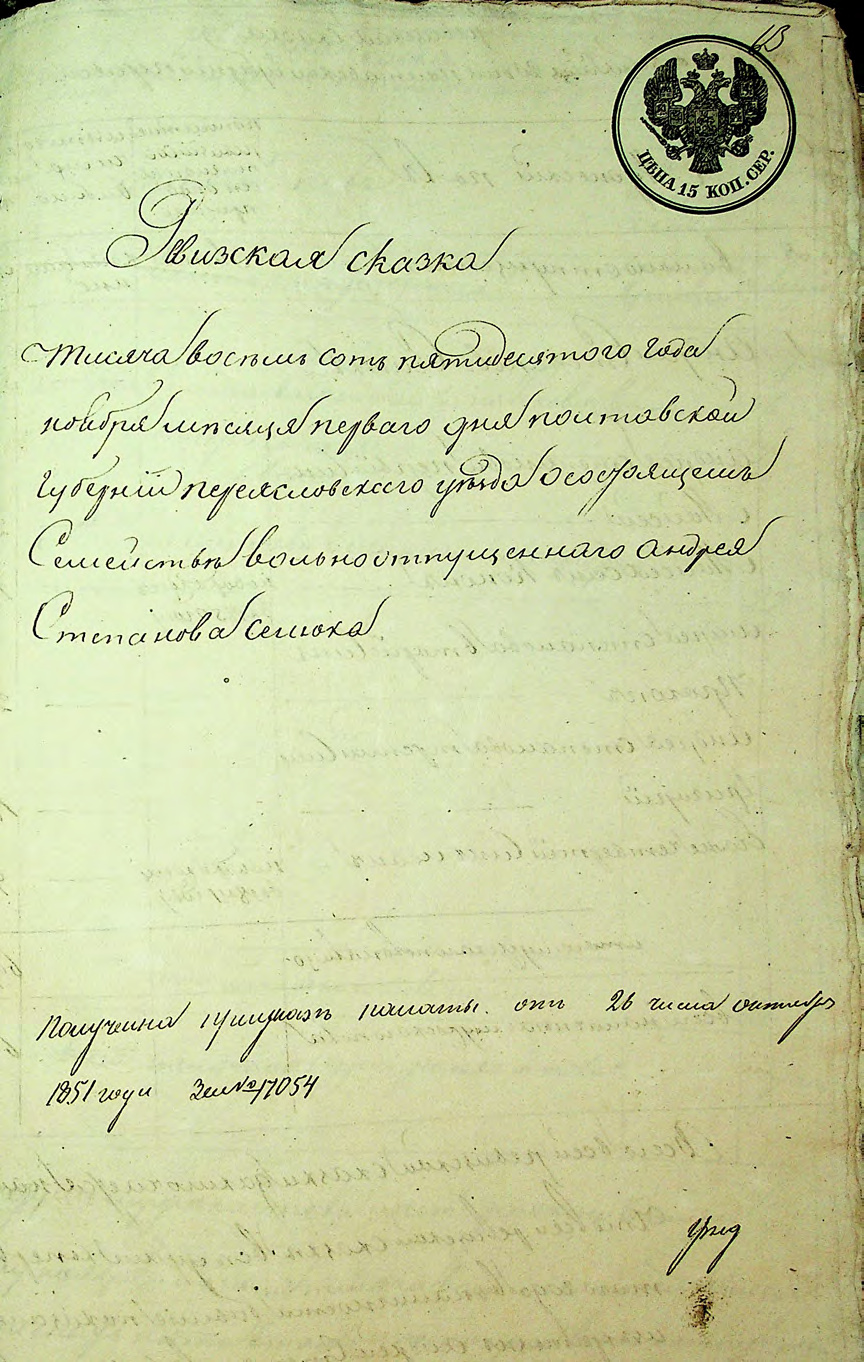 63
ЦѢНА 15 КОП. СЕР.
Ревизская сказка
тисяча восемь сотъ пятидесятого года
ноября мѣсяця перваго дня полтавской
Губерніи переясловского уѣзда о состоящемъ
Семействѣ вольноотпущеннаго андрея
Степанова семюка
Получена при указѣ палаты. отъ 26 числа октября
1851 года За №17054